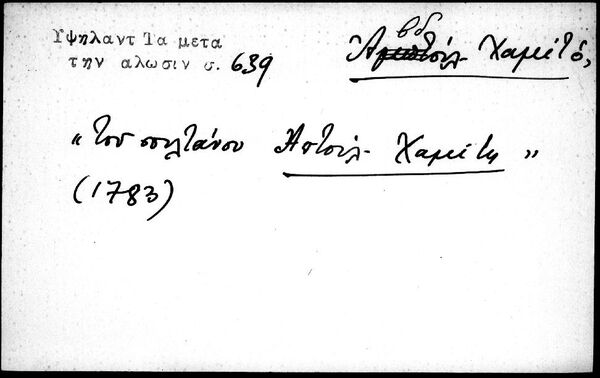 Υψηλαντ Τα μετα
την αλωσιν σ. 639
Αβδούλ Χαμίτ ὁ,
"του σουλτάνου Απτούλ Χαμίτη"
(1783)